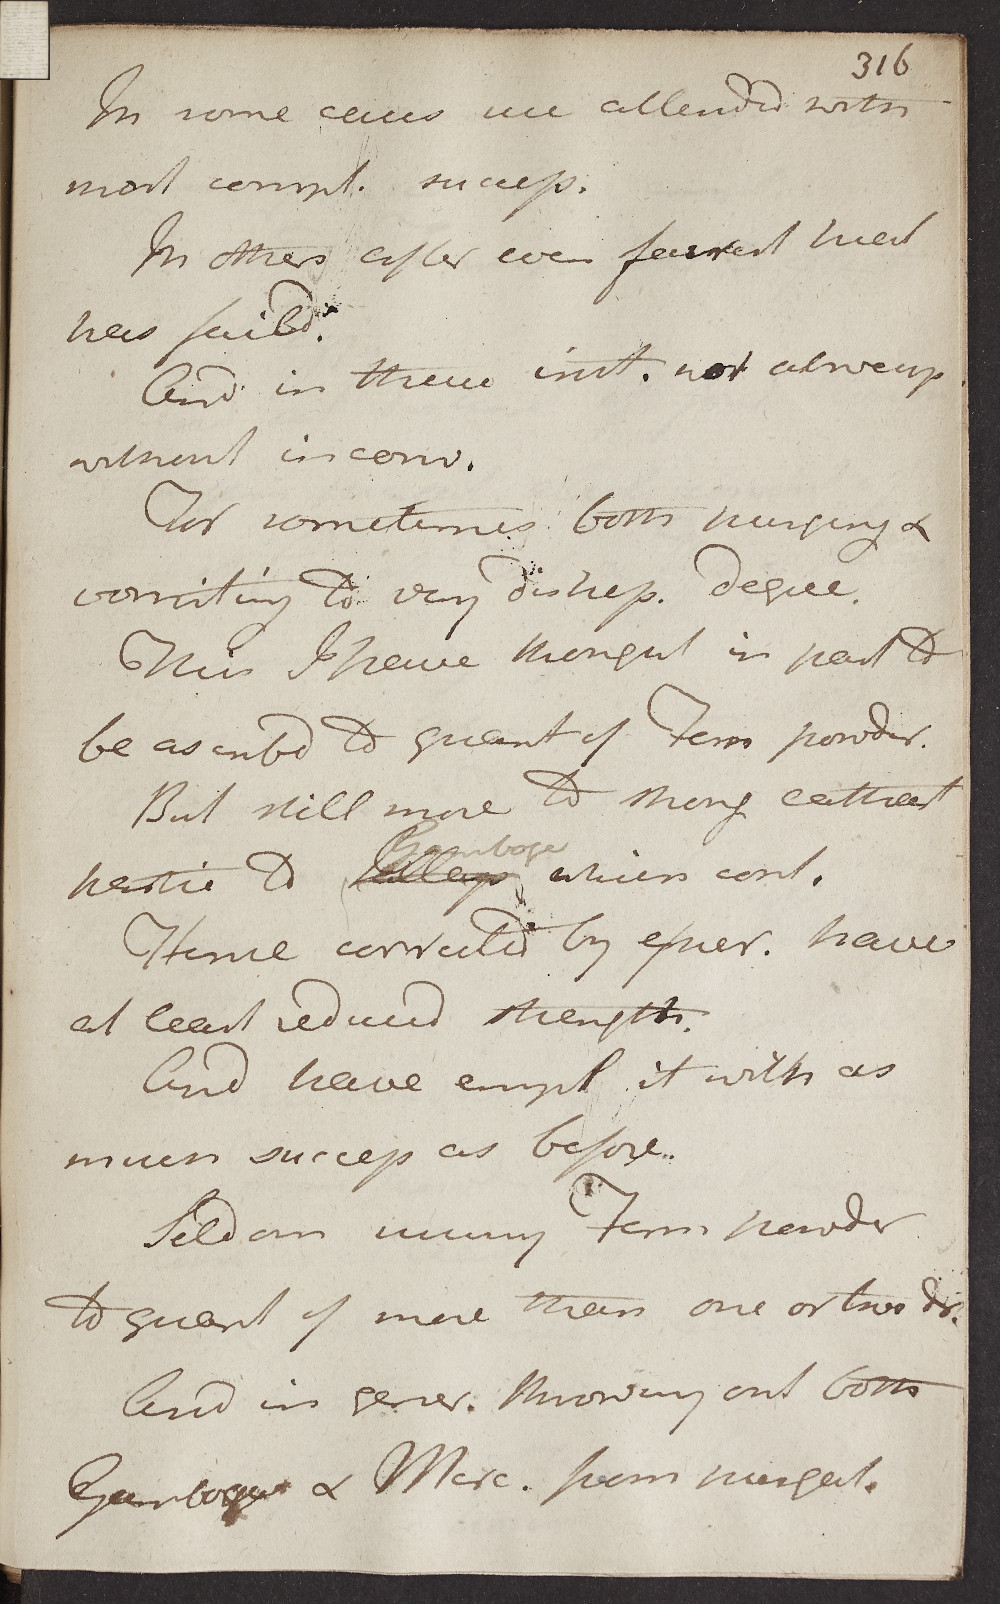 316
In some cases use attended with
most compl. success.
In others after even fairest trial
has faild.
And in these inst. not always
without inconv.
For sometimes both purging &
vomiting to very distress. degree.
This I have thought in part to
be ascribd to quant of Fern powder.
But still more to strong cathart
partic to Gamboge which cont.
Hence corrected by exper. have
at least reducd strength.
And have empl it with as
much success as before.
Seldom using Fern powder
to quant of more than one or two dr.
And in gener. throwing out both
Gamboge & Merc. from purgat.